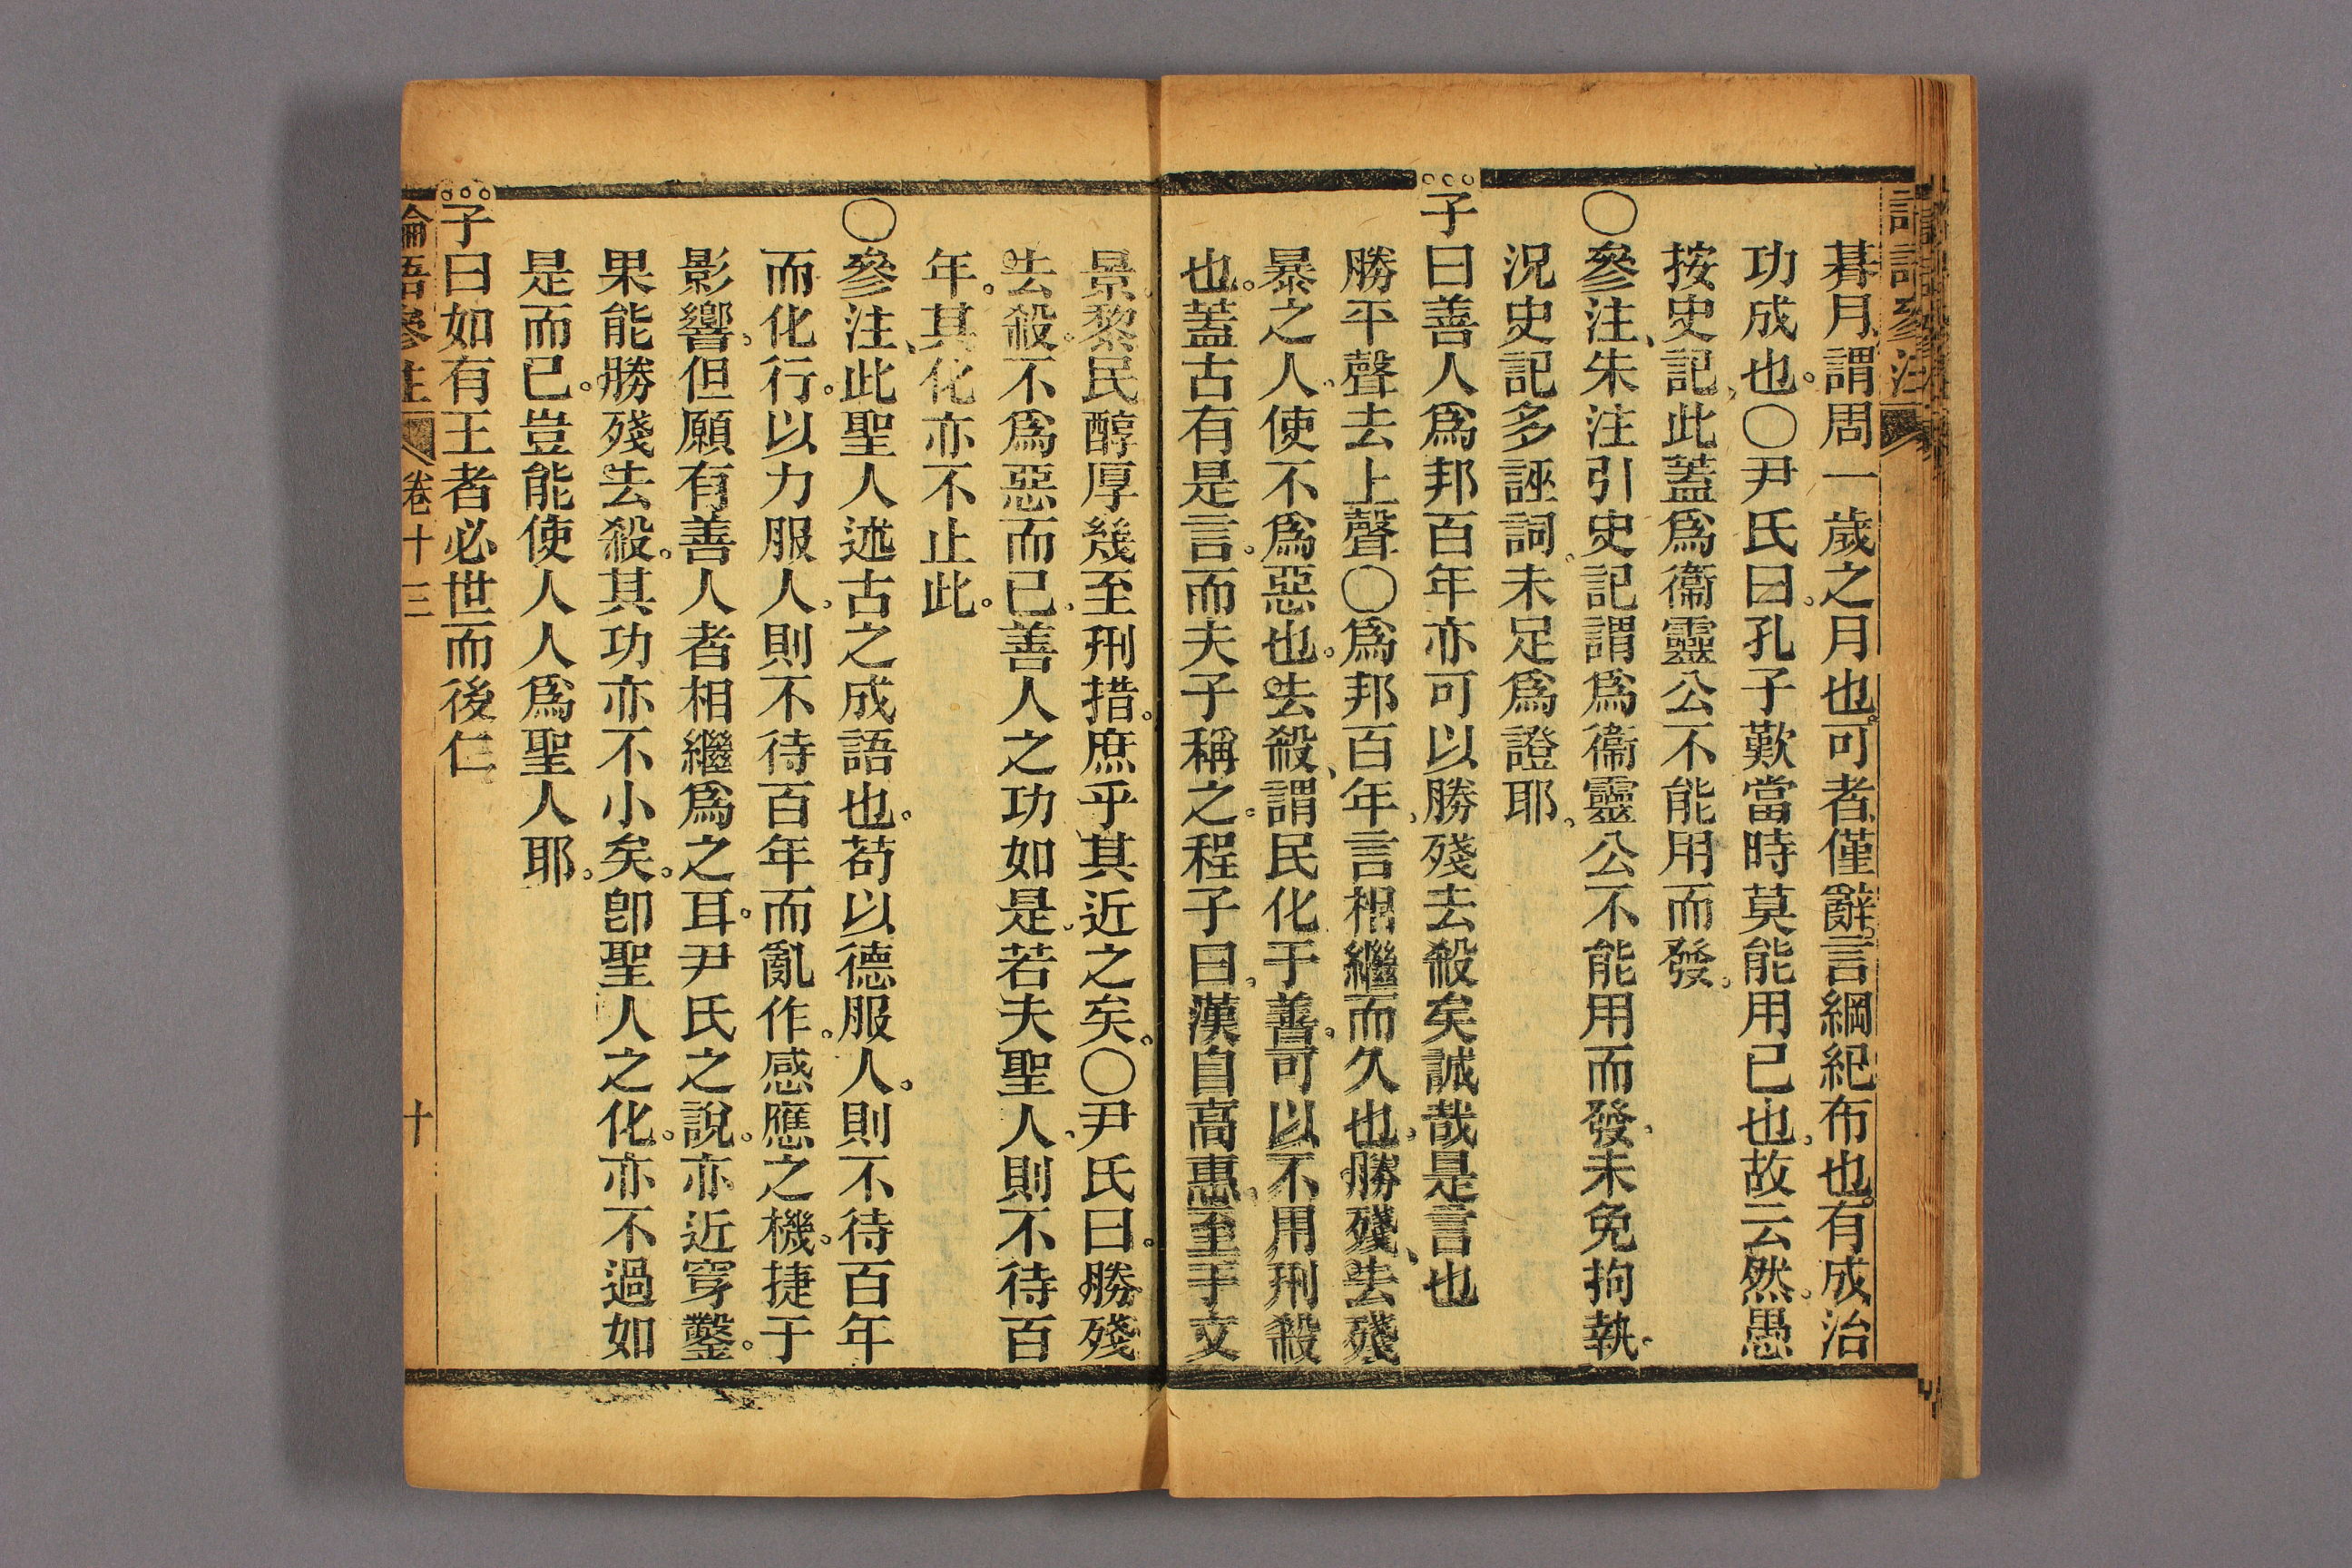 朞月、謂周一歲之月也。可者、僅辭。言綱紀布也。有成、治
功成也。〇尹氏曰。孔子歎當時莫能用已也。故云然。愚
按史記、此蓋爲衞靈公不能用而發。
〇參注、朱注引史記謂爲衞靈公不能用而發。未免拘執。
況史記多誣詞。未足爲證耶。
子曰善人爲邦百年亦可以勝殘去殺矣誠哉是言也
勝平聲去上聲〇爲邦百年、言相繼而久也。勝殘、去殘
暴之人。使不爲惡也。去殺、謂民化于善。可以不用刑殺
也。蓋古有是言。而夫子稱之。程子曰。漢自高惠。至乎文
景。黎民醇厚幾至刑措。庶乎其近之矣。〇尹氏曰。勝殘
去殺。不爲惡而已。善人之功如是。若夫聖人。則不待百
年。其化亦不止此。
〇參注、此聖人述古之成語也。苟以德服人。則不待百年
而化行。以力服人。則不待百年而亂作。感應之機。捷于
影響。但願有善人者相繼爲之耳。尹氏之說。亦近穿鑿。
果能勝殘去殺。其功亦不小矣。卽聖人之化。亦不過如
是而已。豈能使人人爲聖人耶。
子曰如有王者必世而後仁
論語參注 卷十三 十